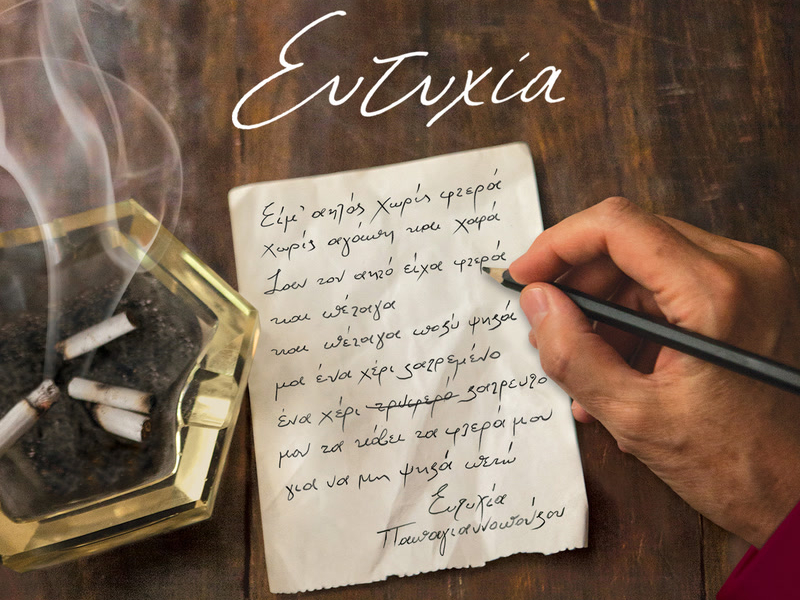 Ευτυχία
Είμ' αητός χωρίς φτερά
χωρίς αγάπη και χαρά
Σαν τον αητό είχα φτερά
και πέταγα
και πέταγα πολύ ψηλά
μα ένα χέρι λατρεμένο
ένα χέρι τρυφερό λατρευτό
μου τα κόβει τα φτερά μου
για να μη ψηλά πετώ
Ευτυχία
Παπαγιαννοπούλου